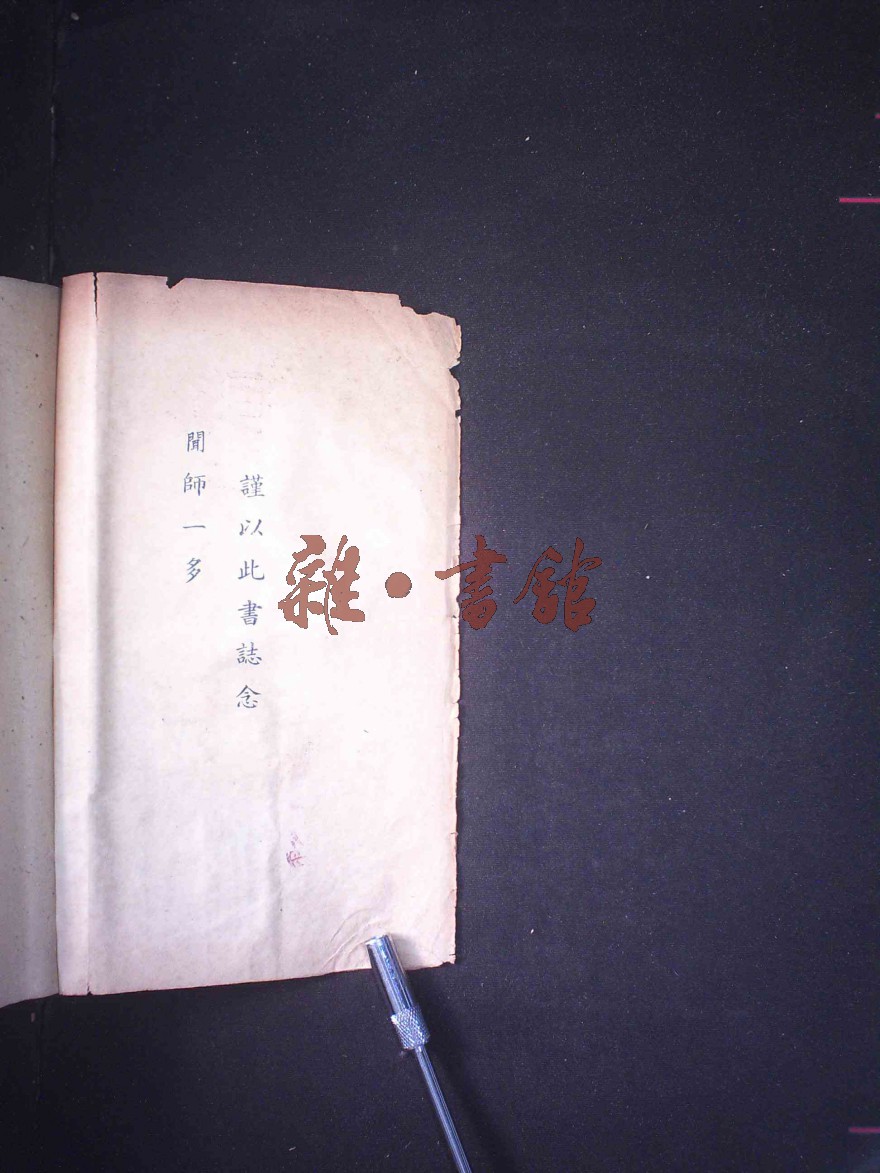 謹以此書誌念
聞師一多
雜·書館